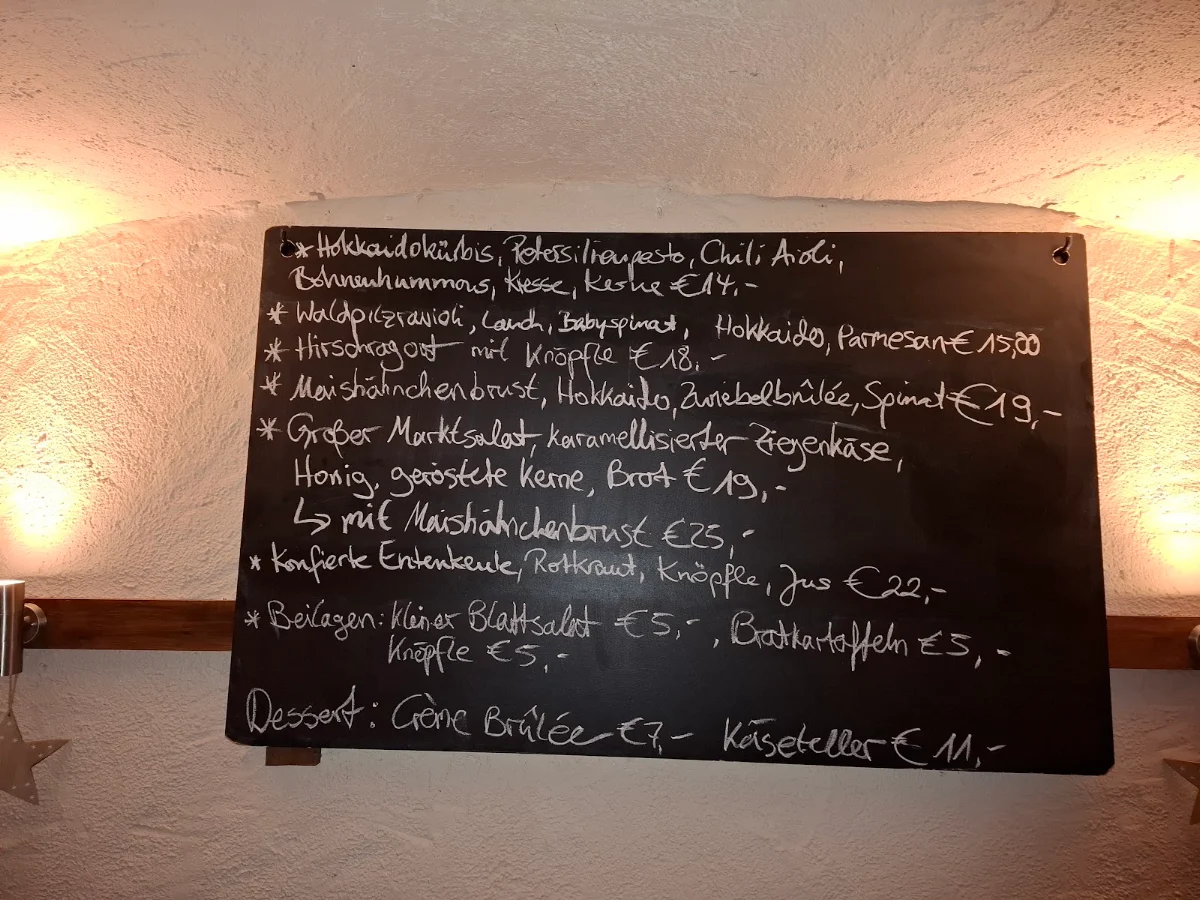 * Hokkaidokürbis, Petersilienpesto, Chili Aioli,
Bohnenhummous, Kresse, Kerne €14,-
* Waldpilzravioli, Lauch, Babyspinat, Hokkaido, Parmesan €15,00
* Hirschragout mit Knöpfle €18,-
* Maishähnchenbrust, Hokkaido, Zwiebelbrûlée, Spinat €19,-
* Großer Marktsalat, karamellisierter Ziegenkäse,
Honig, geröstete Kerne, Brot €19,-
↳ mit Maishähnchenbrust €25,-
* Konfierte Entenkeule, Rotkraut, Knöpfle, Jus €22,-
* Beilagen: Kleiner Blattsalat €5,-, Bratkartoffeln €5,-
Knöpfle €5,-
Dessert: Crème Brûlée €7,- Käseteller €11,-